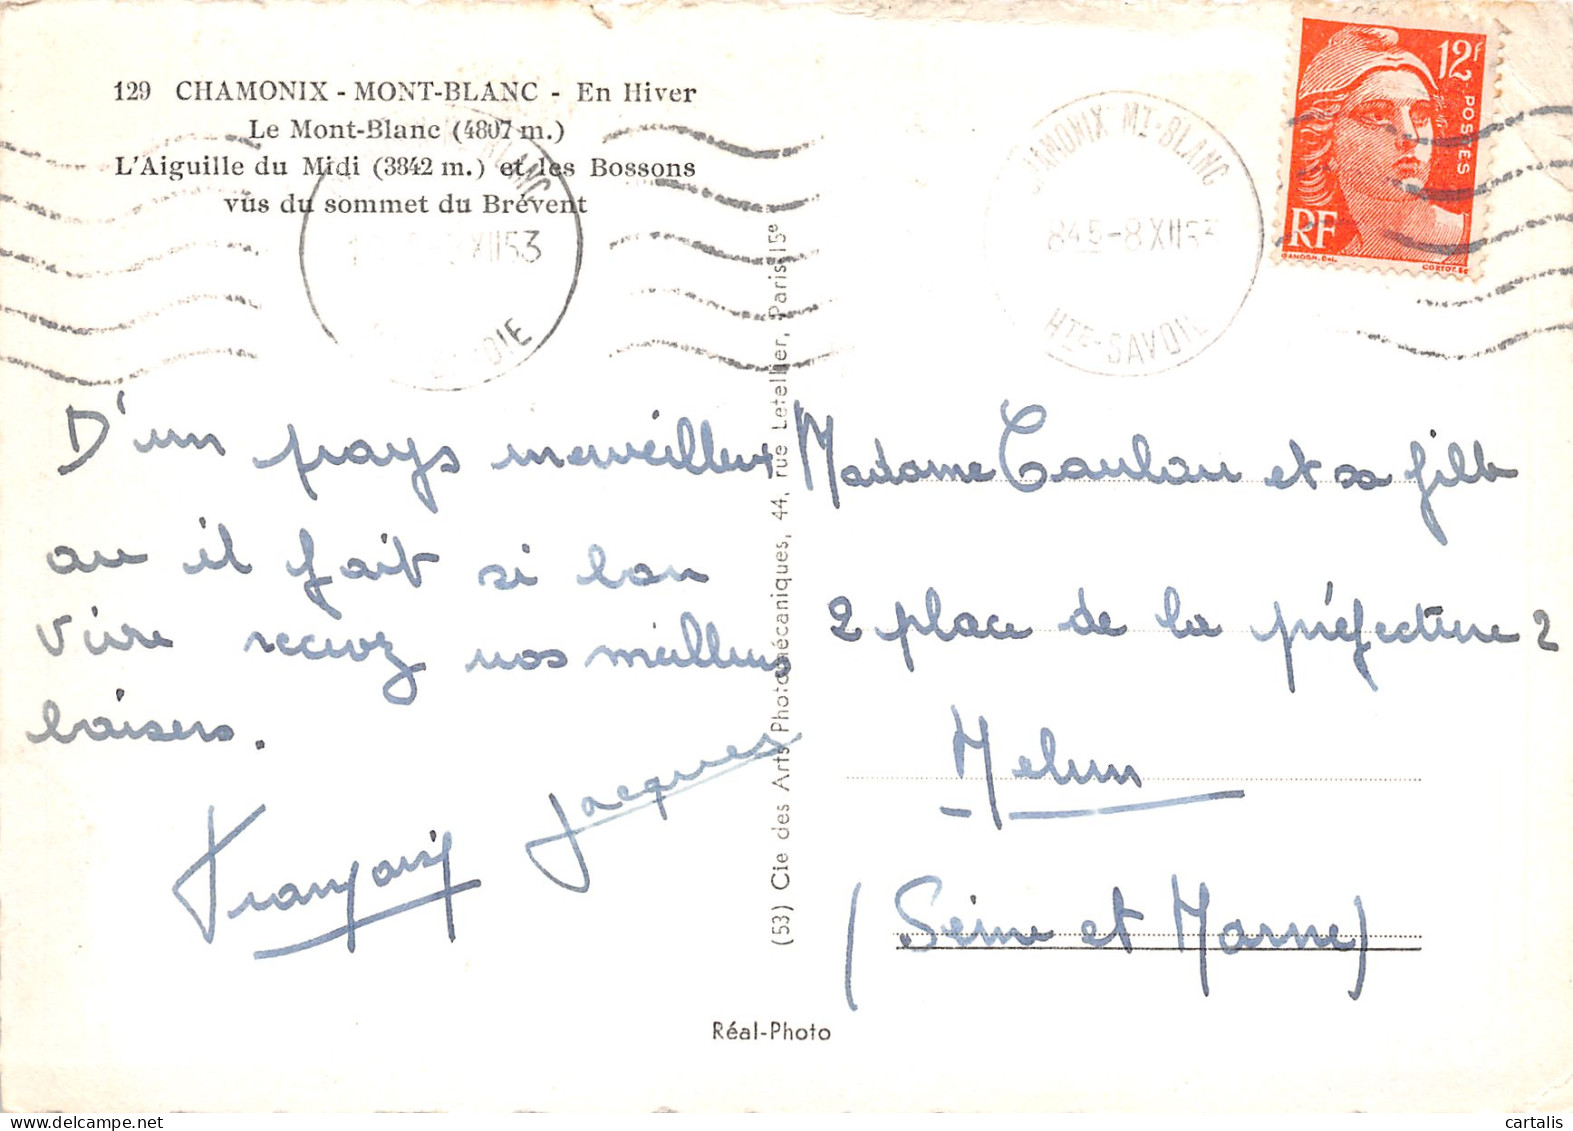 129 CHAMONIX - MONT-BLANC - En Hiver
Le Mont-Blanc (4807 m.)
L'Aiguille du Midi (3842 m.) et les Bossons
vus du sommet du Brévent
XII 53
12F
POSTES
RF
GANDON. Del.
CORTOT. Sc
CHAMONIX MT-BLANC
845-8 XII 53
HTE-SAVOIE
D'un pays merveilleux
ou il fait si bon
vivre recevez nos meilleurs
baisers.
Jacques
Madame et sa fille
2 place de la préfecture 2
Melun
(Seine et Marne)
(53) Cie des Arts Photomécaniques, 44, rue Letellier, Paris 15e
Réal-Photo
cartalis